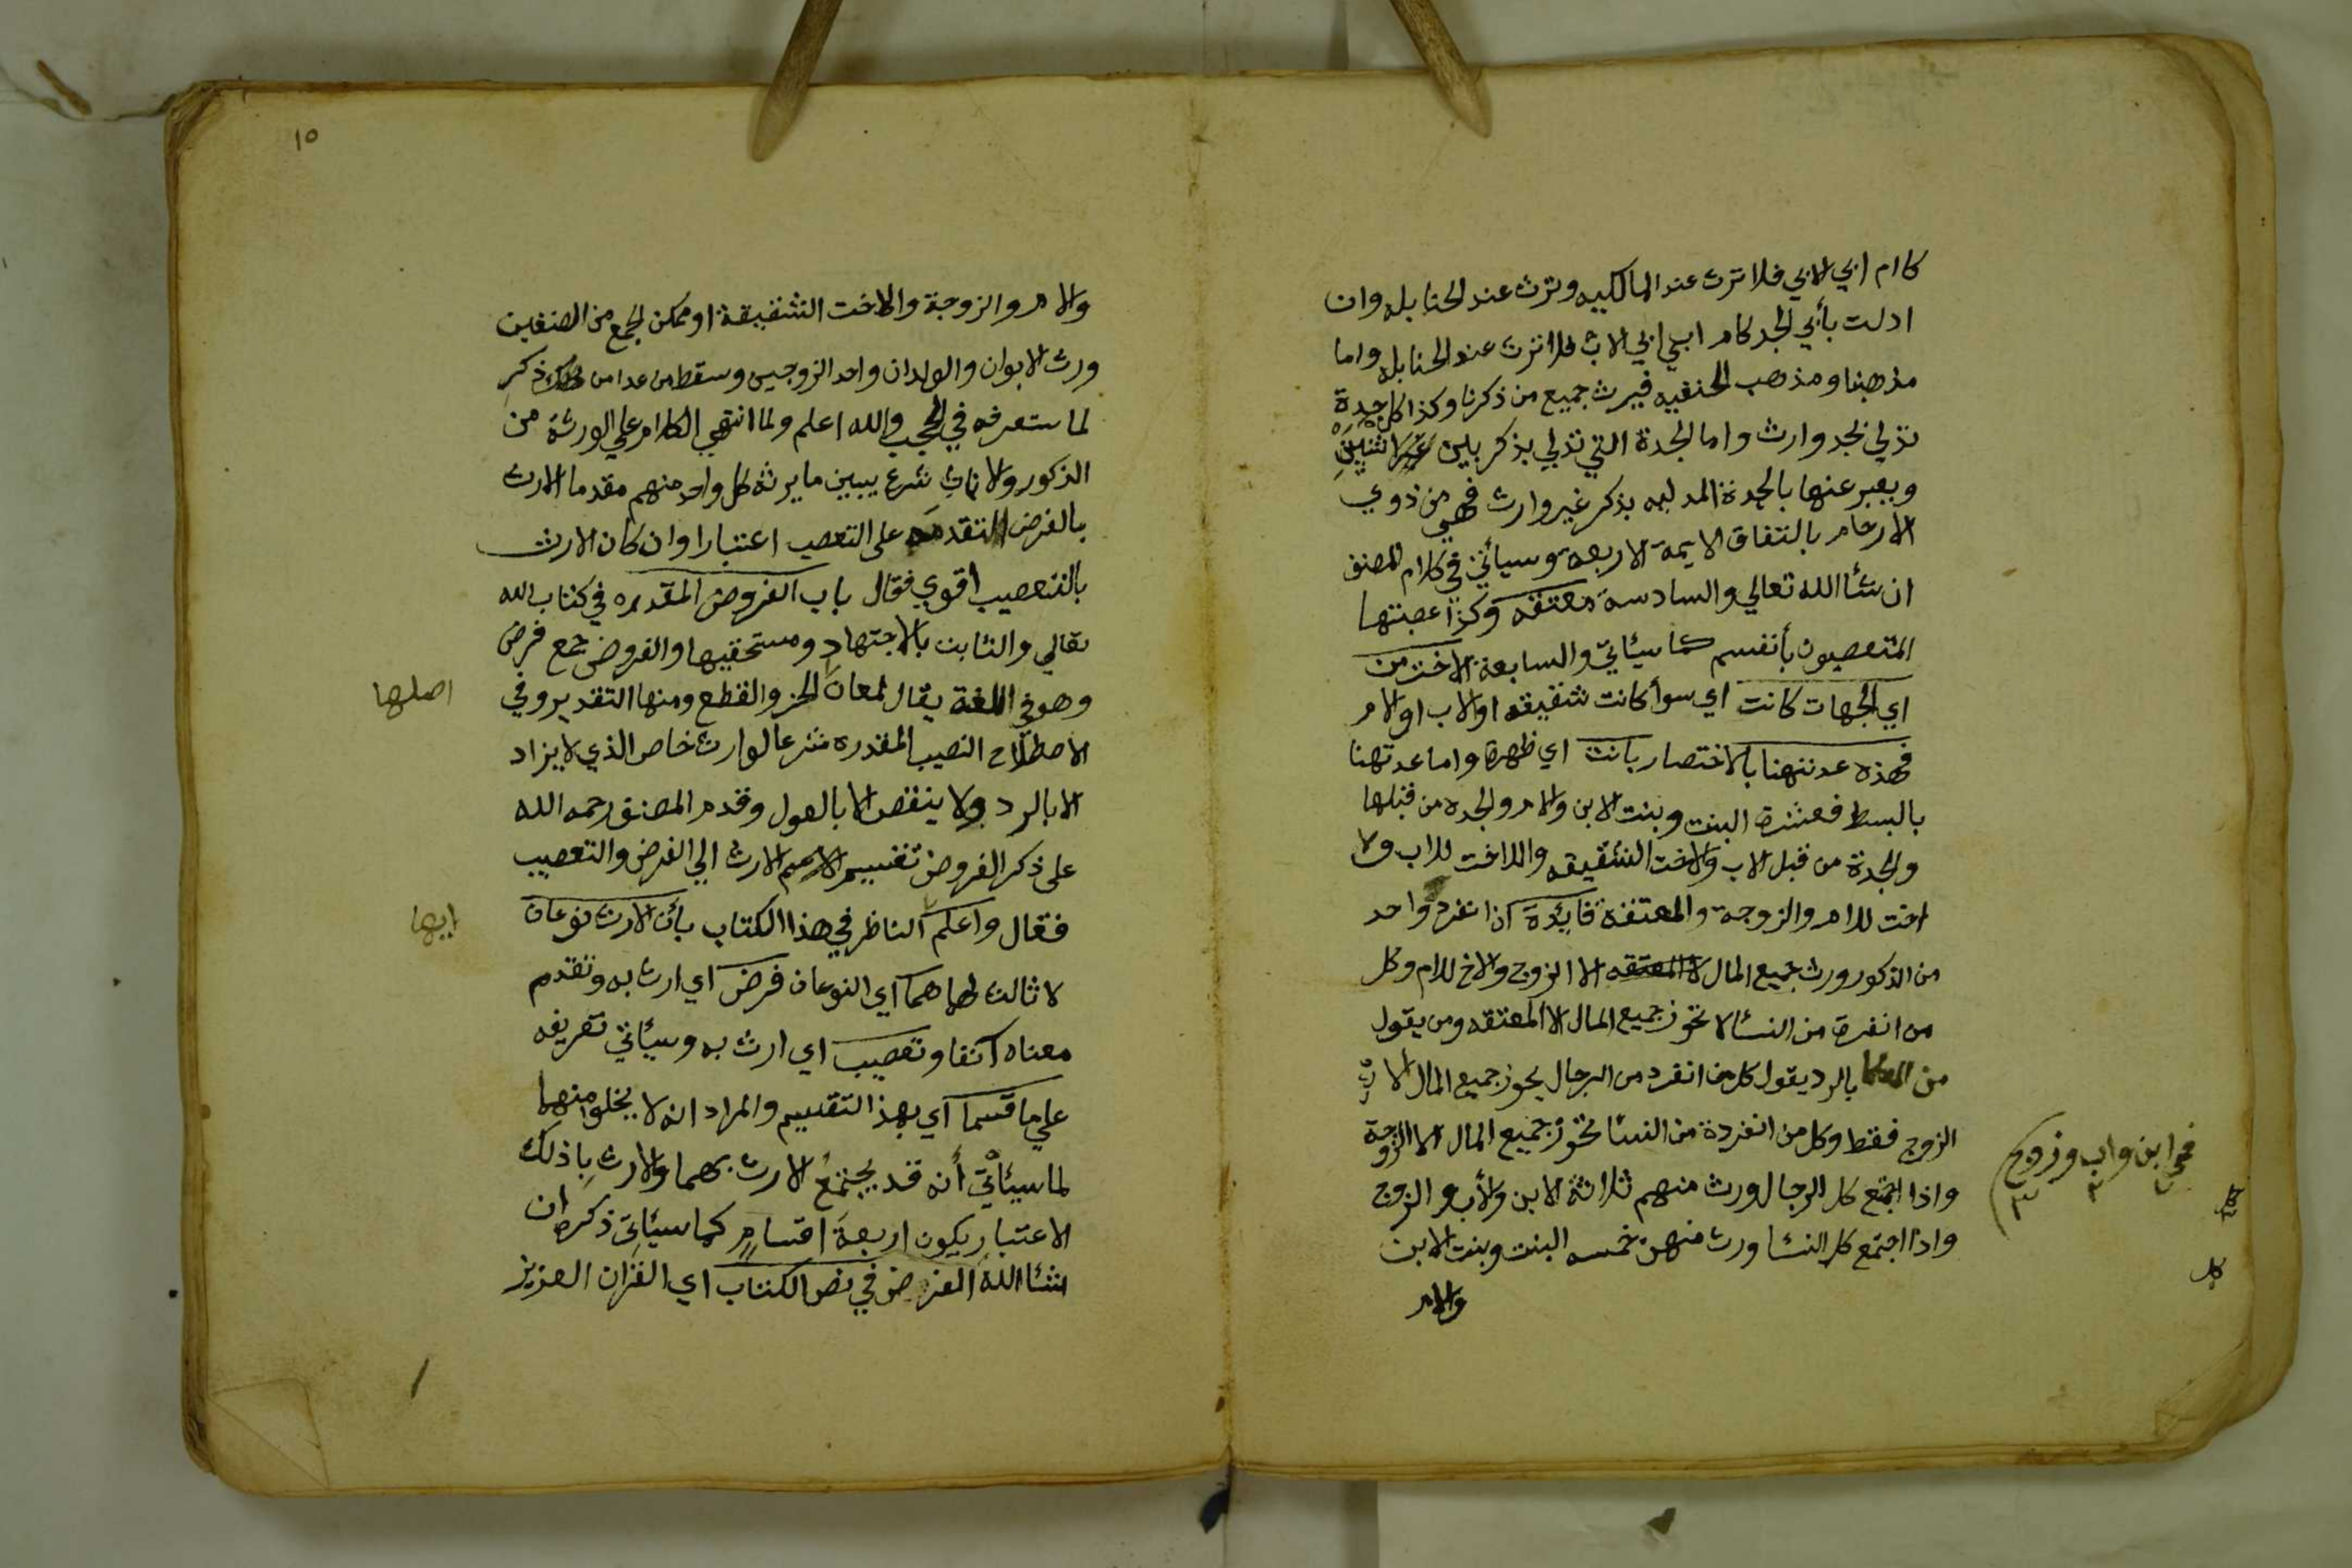 كام ابي الابي فلا ترث عند المالكيه وترث عند الحنابله وان
ادلت بأبي الجد كام ابي ابي الاب فلا ترث عند الحنابله واما
مذهبنا ومذهب الحنفيه فيرث جميع من ذكرنا وكذا كل جدة
تدلي بجد وارث واما الجدة التي تدلي بذكر بين انثيين
ويعبر عنها بالجدة المدليه بذكر غير وارث فهي من ذوي
الارحام بالتفاق الايمة الاربعة وسيأتي في كلام المصنف
ان شئا الله تعالي والسادسة معتقه وكذا عصبتها
المتعصبون بأنفسهم كما سيئاتي والسابعة الاخت من
اي الجهات كانت اي سوأ كانت شقيقه او لاب او لام
فهذه عدتهنا بالاختصار بانت اي ظهرة واما عدتهنا
بالبسط فعشرة البنت وبنت الابن والام والجده من قبلها
والجدة من قبل الاب والاخت الشقيقه والاخت للاب والا
اخت للام والزوجة والمعتقة فايدة اذا انفرد واحد
من الذكور ورث جميع المال الا الزوج والاخ للام وكل
من انفرة من النسئا لا تحوز جميع المال الا المعتقه ومن يقول
من العلما بالرد يقول كل من انفرد من الرجال يحوز جميع المال الا
الزوج فقط وكل من انفردة من النسئا تحوز جميع المال الا الزوجة
واذا اجتمع كل الرجال ورث منهم ثلاثة الابن والأب والزوج
واذا اجتمع كل النسئا ورث منهن خمسه البنت وبنت الابن
والام
ابن واب وزوج
٧ ٢ ٣
كل
١٥
والام والزوجة والاخت الشقيقة او ممكن لجمع من الصنفين
ورث الابوان والولدان واحد الزوجين وسقط من عدا من ذكر
لما ستعرفه في الحجب والله اعلم ولما انتهي الكلام علي الورثة من
الذكور والاناث شرع يبين ما يرثه كل واحد منهم مقدما الارث
بالفرض لتقدمه على التعصيب اعتبارا وان كان الارث
بالتعصيب اقوي فقال باب الفروض المقدره في كتاب الله
تعالي والثابت بالاجتهاد ومستحقيها والفروض جمع فرض
وهو في اللغة يقال لمعان الحز والقطع ومنها التقدير وفي
اصلها
الاصطلاح النصيب المقدره شرعا لوارث خاص الذي لا يزاد
الا بالرد ولا ينقص الا بالعول وقدم المصنف رحمه الله
على ذكر الفروض تقسيم الارث الي الفرض والتعصيب
فقال واعلم الناظر في هذا الكتاب بأن الارث نوعان
ايها
لا ثالث لهما هما اي النوعان فرض اي ارث به وتقدم
معناه آنفا وتعصيب اي ارث به وسيئاتي تعريفه
علي ما قسما اي بهذ التقسيم والمراد انه لا يخلوا منهما
لما سيئاتي أنه قد يجتمع الارث بهما والارث بذلك
الاعتبار يكون اربعة اقسام كما سيئاتي ذكره ان
شئا الله الفرض في نص الكتاب اي القرآن العزيز